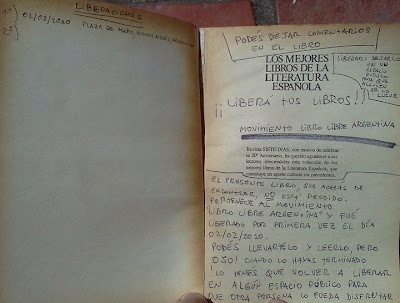 LIBERACIONES
1º) 02/02/2010
2º)
PLAZA DE MAYO, BUENOS AIRES, ARGENTINA
PODÉS DEJAR COMENTARIOS
EN EL LIBRO
LOS MEJORES
LIBROS DE LA
LITERATURA
ESPAÑOLA
LIBERADO: DEJARLO
EN UN
ESPACIO
PÚBLICO
PARA QUE
ALGUIEN
SE LO
LLEVE
¡¡LIBERÁ TUS LIBROS!!
MOVIMIENTO LIBRO LIBRE ARGENTINA
Revista SIETE DIAS, con motivo de celebrar
su 20º Aniversario, ha querido agradecer a sus
lectores ofreciéndoles esta colección de los
mejores libros de la Literatura Española, que
constituyen un aporte cultural sin precedentes.
EL PRESENTE LIBRO, QUE ACABAS DE
ENCONTRAR, NO ESTÁ PERDIDO.
PERTENECE AL MOVIMIENTO
"LIBRO LIBRE ARGENTINA" Y FUÉ
LIBERADO POR PRIMERA VEZ EL DÍA
02/02/2010.
PODÉS LLEVARTELO Y LEERLO, PERO
OJO! CUANDO LO HAYAS TERMINADO
LO TENÉS QUE VOLVER A LIBERAR
EN ALGÚN ESPACIO PÚBLICO PARA
QUE OTRA PERSONA LO PUEDA DISFRUTAR